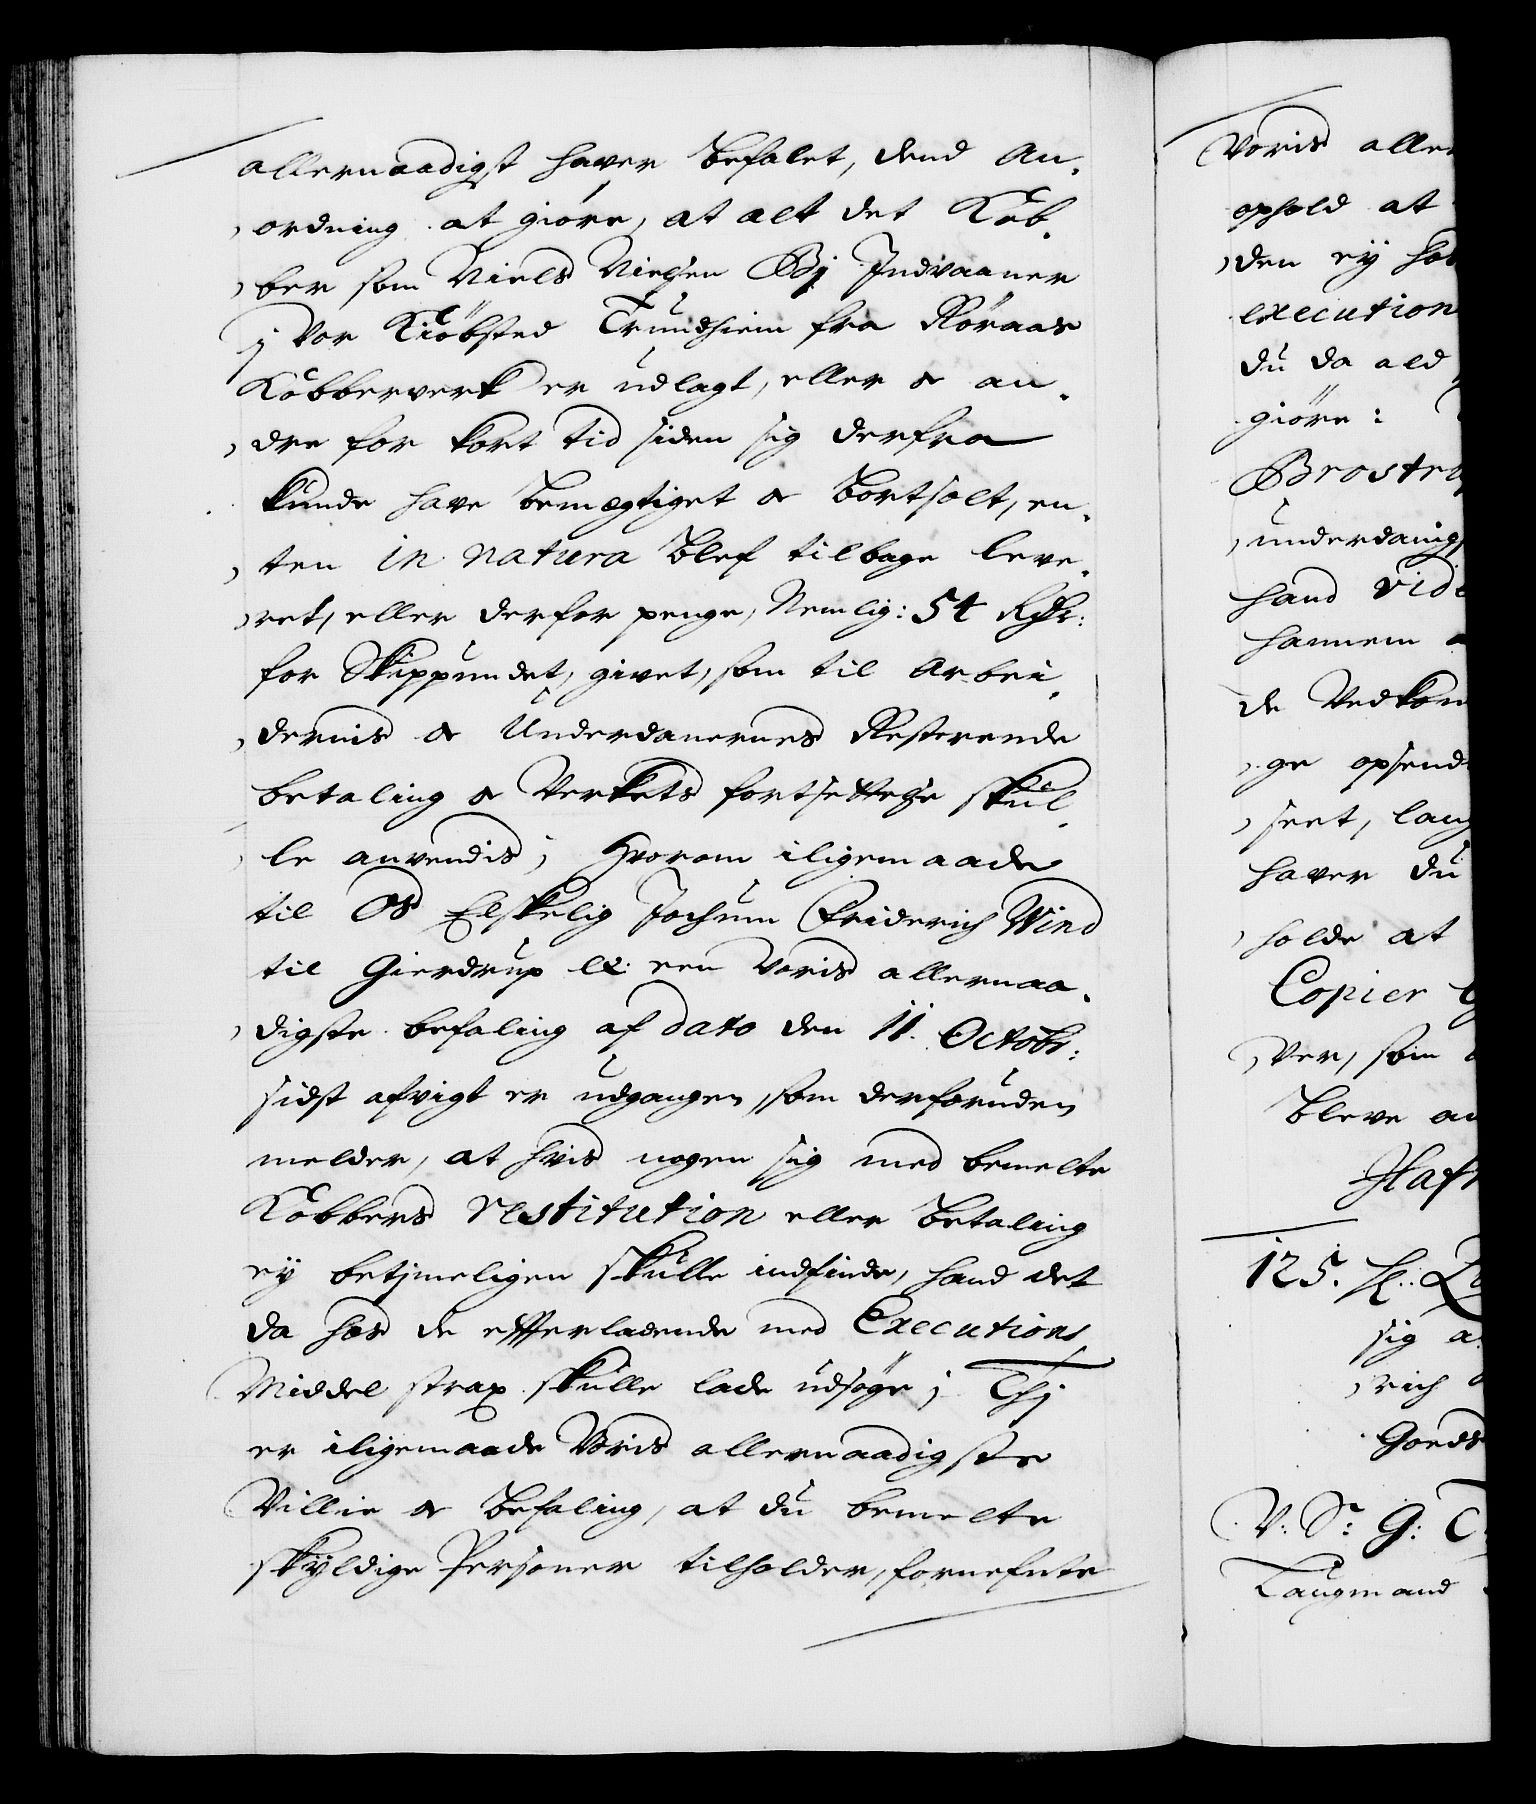 allernaadigst haver befalet, dend An-
ordning at giöre, at alt det Kob-
ber som Niels Nielsen By Indvaaner
j Vor Kiöbsted Trundhiem fra Röraas
Kobberverk er udlagt, eller & an-
dre for kort tid siden sig derfra
kunde have bemægtiget & bortsolt, en-
ten in natura blef tilbage leve-
ret, eller derfor penge, Nemlig: 54 Rdr:
for Skippundet, givet, som til Arbei-
dernis & Underdanernes Resterende
betaling & Verkets fortsettelse skul-
le anvendis; Hvorom iligemaade
til Os Elskelig Jochum Friderich Wind
til Gierdrup &: een Voris allernaa-
digste befaling af dato den 11. Octobr:
sidst afvigt er udgangen, som derforuden
melder, at hvis nogen sig med bemelte
Kobbers restitution eller betaling
ey betjmeligen skulle indfinde, hand det
da hos de efferladende med Executions
Middel strax skulle lade udsöge; Thj
er iligemaade Voris allernaadigste
Villie & befaling, at du bemelte
skyldige Personer tilholder, fornefnte
Voris aller
ophold at
den ey hos
execution
du da ald
giöre:
Brostru
underdanigs
hand vide
hannem
de Vedkom
ge opsend
seet, lang
haver du
holde at
Copier
ver, som
bleve an
Hafn
125. H:
sig a
rich
Gods
V: Sr: G: T
Laugmand